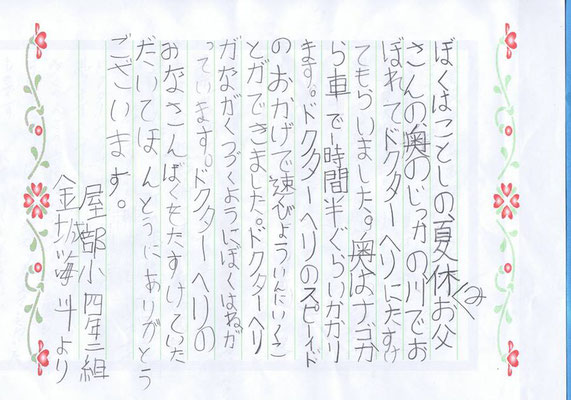 ぼくはことしの夏休みお父
さんの奥のじっかの川でお
ぼれてドクターヘリにたすけ
てもらいました。奥はナゴか
ら車で1時間半ぐらいかかり
ます。ドクターヘリのスピード
のおかげで速びょういんにいくこ
とができました。ドクターヘリ
がながくつづくようにぼくはねが
っています。ドクターヘリの
みなさんぼくをたすけていた
だいてほんとうにありがとう
ございます。
屋部小四年三組
金城海斗より